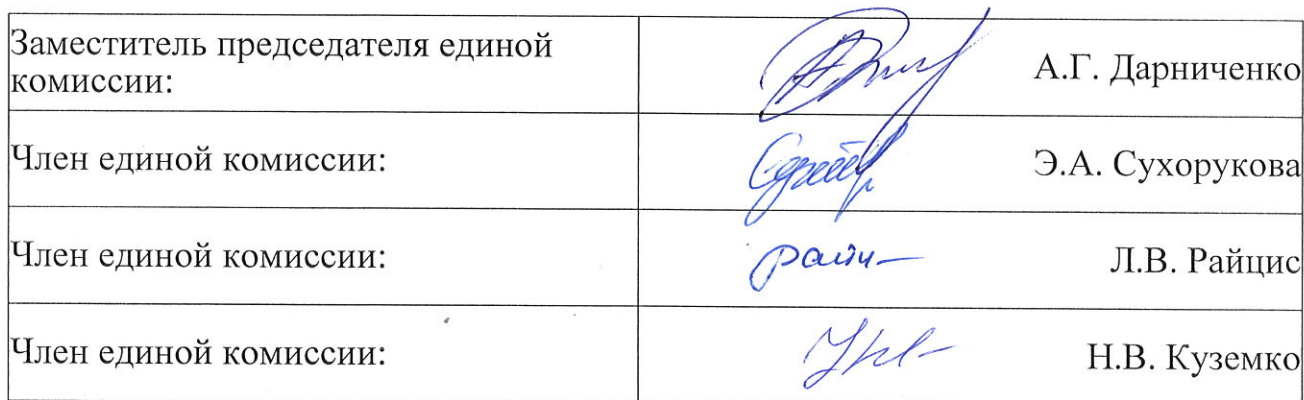 Заместитель председателя единой
комиссии:
А.Г. Дарниченко
Член единой комиссии:
Э.А. Сухорукова
Член единой комиссии:
Л.В. Райцис
Член единой комиссии:
Н.В. Куземко